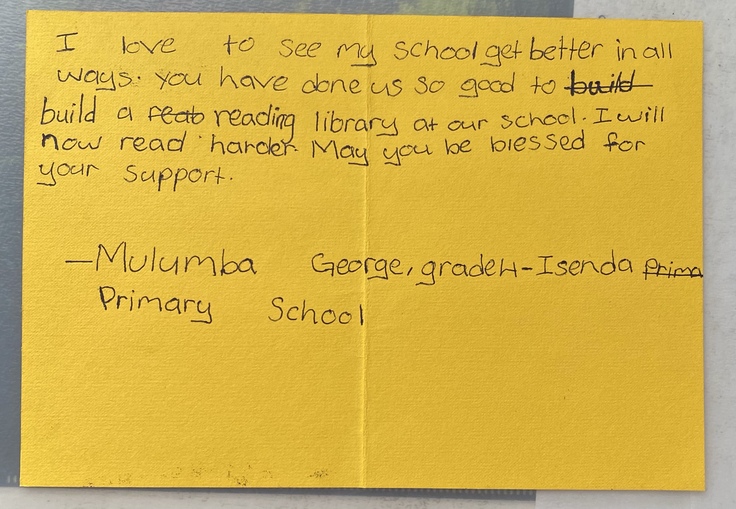 I love to see my school get better in all
ways. you have done us so good to build
build a reading library at our school. I will
now read harder. May you be blessed for
your support.
—Mulumba George, grade 4-Isenda Prima
Primary School